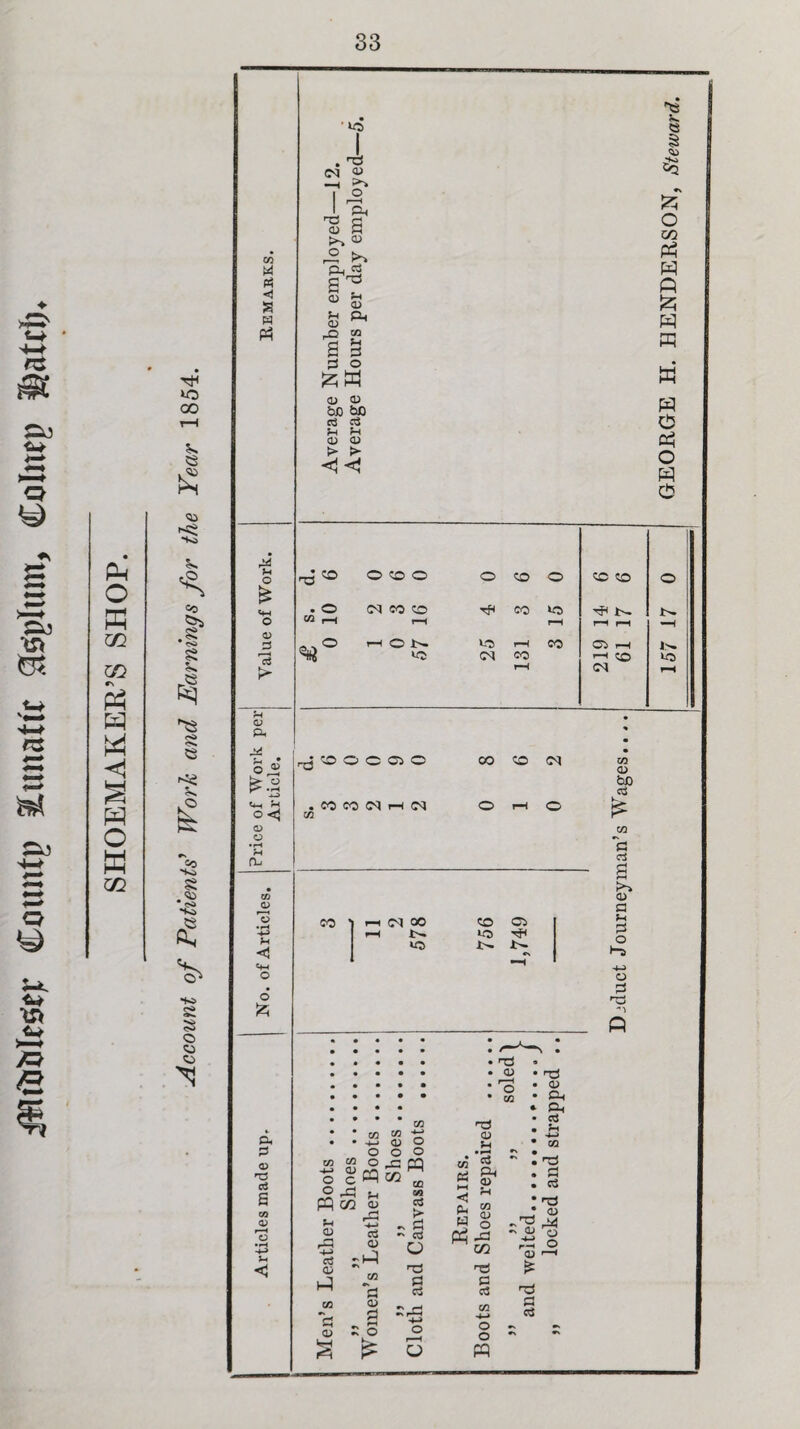 33
Middlesex County Lunatic Asylum, Colney Hatch.
SHOEMAKER'S SHOP.
Account of Patients' Work and Earnings for the Year 1854.
Articles made up. No. of Articles. Price of Work per Article. Value of Work. REMARKS.
s. d. £ s. d.
Men's Leather Boots ......... 3 3 6 0 10 6 Average Number employed—12.
„ „ Shoes ......... — 3 0 Average Hours per day employed—5.
Women's Leather Boots ......... 11 2 0 1 2 0
„ „ Shoes ......... 2 1 9 0 3 6
Cloth and Canvass Boots ...... 578 2 0 57 16 0
REPAIRS.
Boots and Shoes repaired ...... 756 0 8 25 4 0
„ „ „ soled }
„ and welted............... } 1,749 1 6 131 3 6
„ locked and strapped .. — 0 2 3 15 0
219 14 6
Deduct Journeyman's Wages.... 61 17 6
157 17 0
GEORGE H. HENDERSON, Steward.